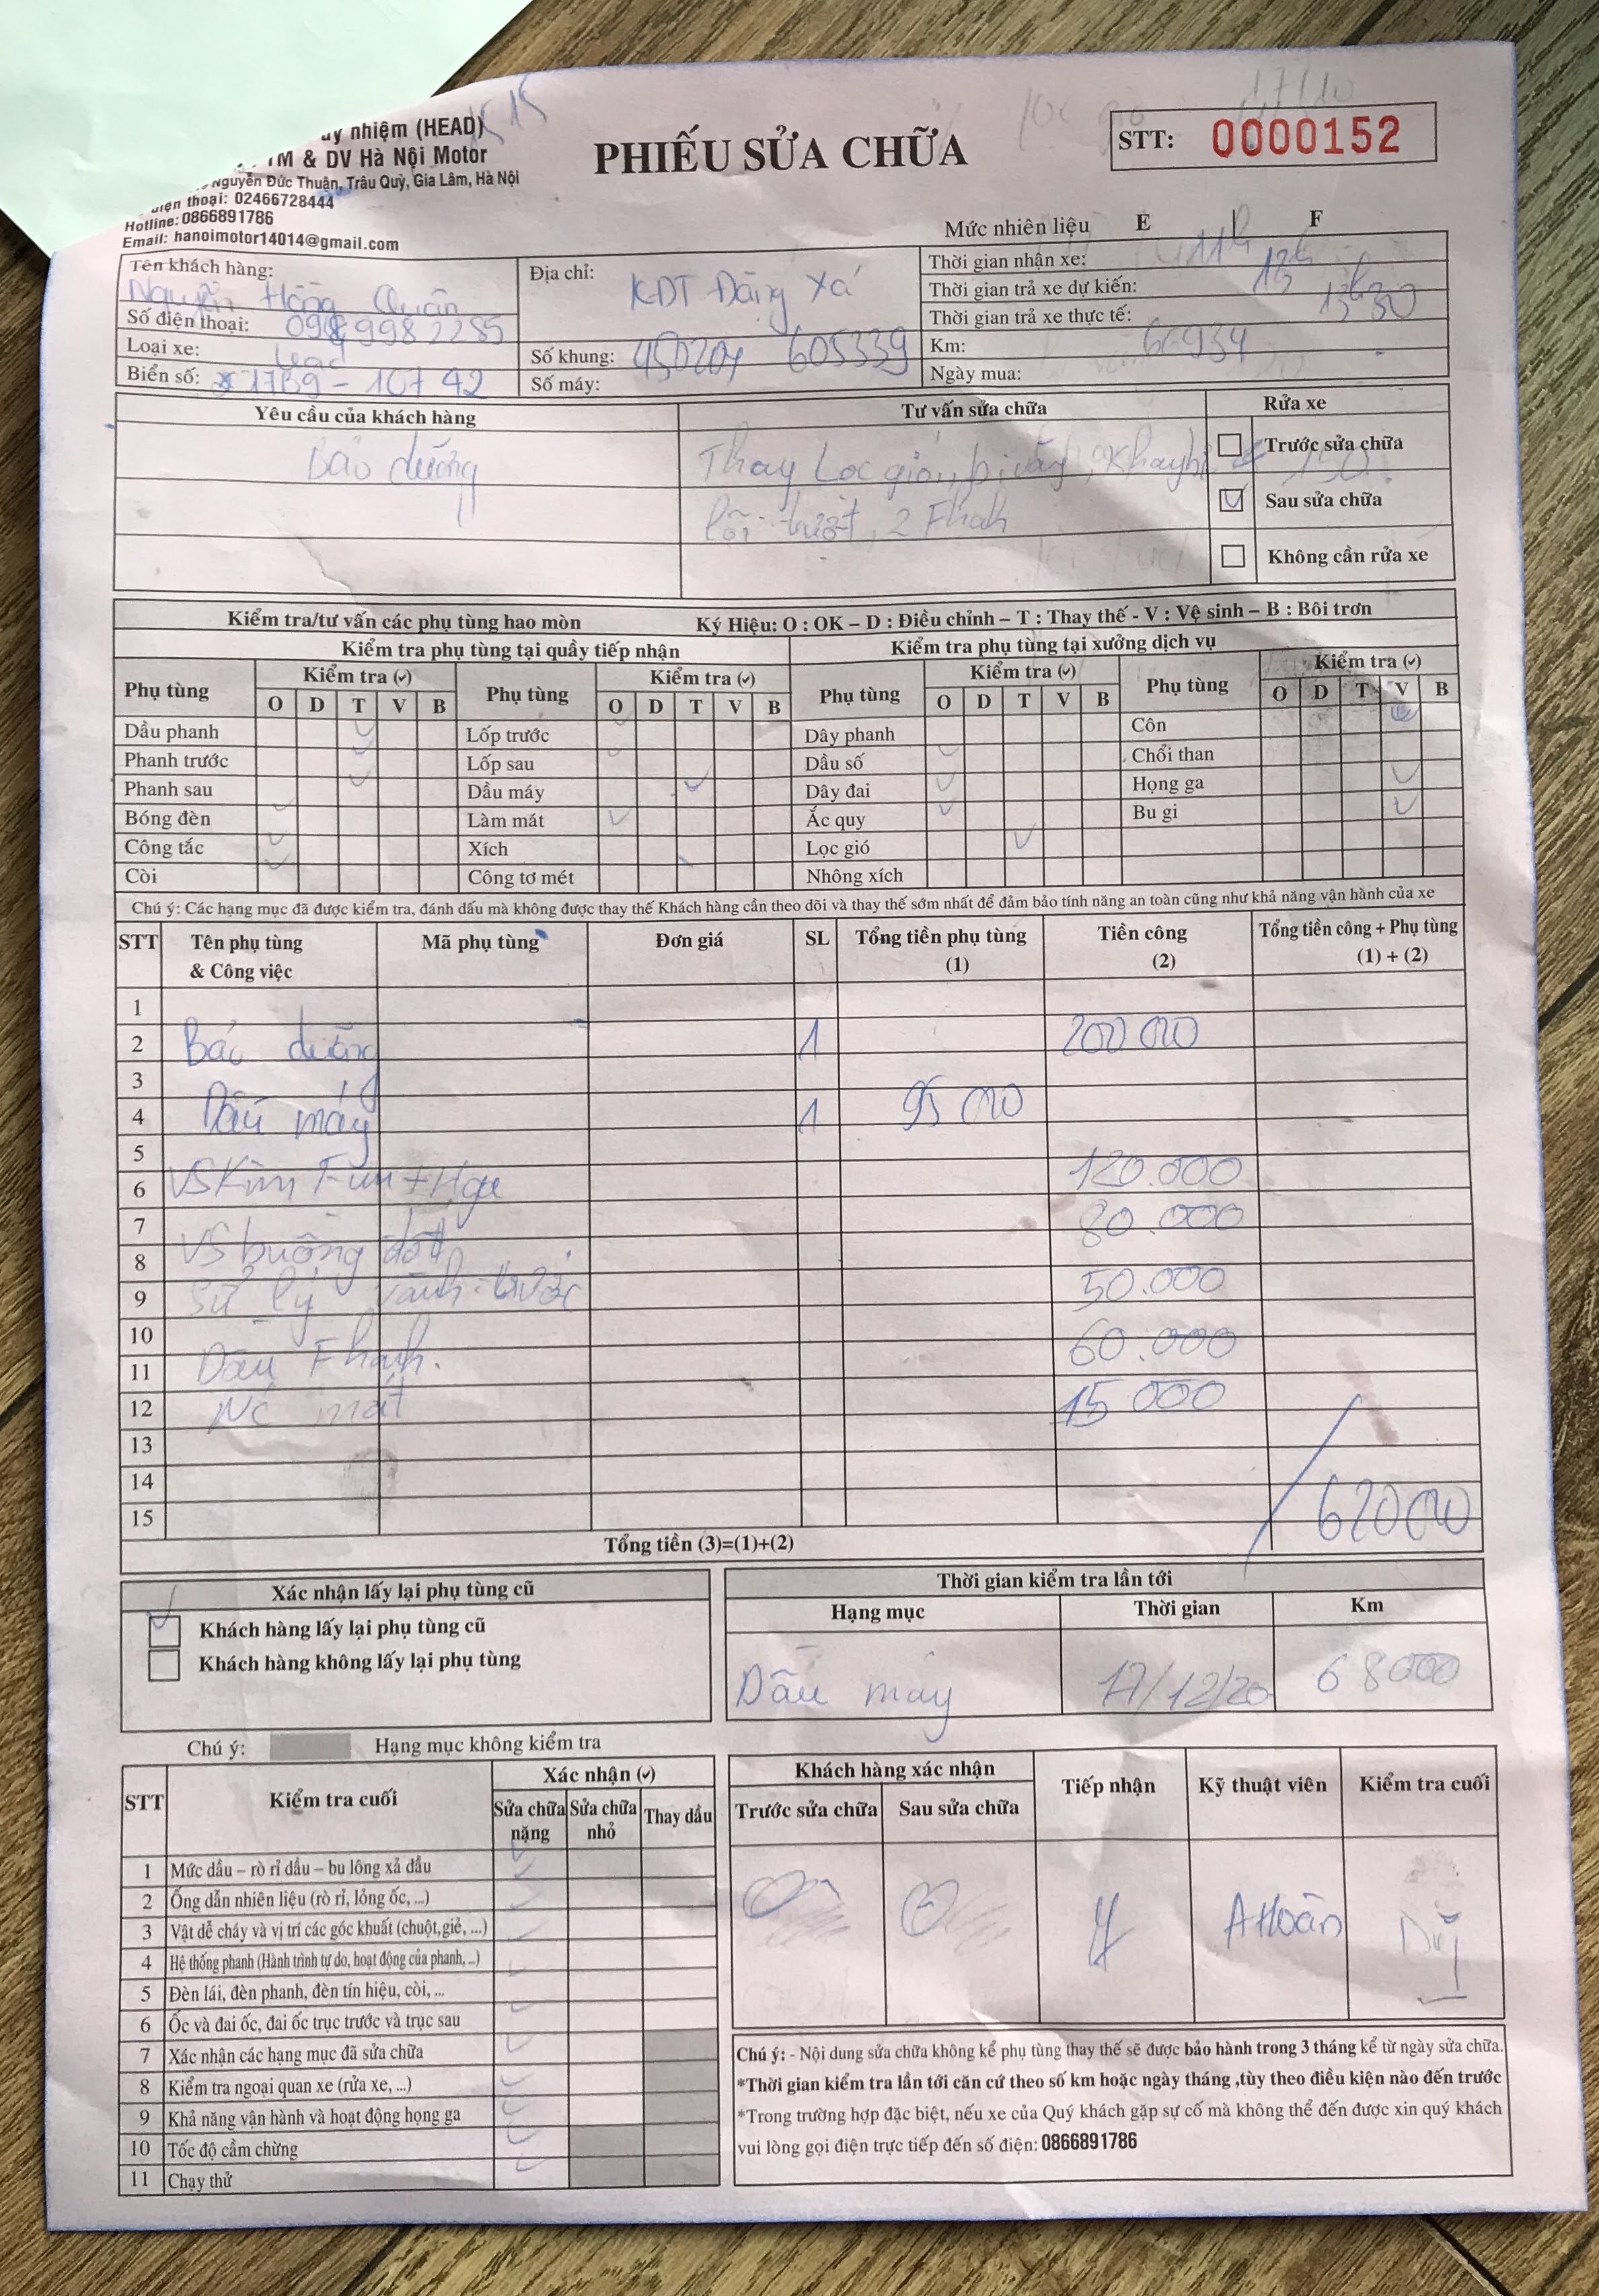 nhiệm (HEAD)
TM & DV Hà Nội Motor
Nguyễn Đức Thuận, Trâu Quỳ, Gia Lâm, Hà Nội
thoại: 02466728444
Hotline: 0866891786
Email: hanoimotor14014@gmail.com
17/10
PHIẾU SỬA CHỮA
STT: 0000152
Mức nhiên liệu E F
Tên khách hàng: Nguyễn Hồng Quân
Số điện thoại:
Loại xe: Lead
Biển số: 17B9 - 107.42
Địa chỉ: KDT Đặng Xá
Số khung: 605339
Số máy:
Thời gian nhận xe: 11h
Thời gian trả xe dự kiến: 13h
Thời gian trả xe thực tế: 13h30
Km: 66934
Ngày mua:
Yêu cầu của khách hàng
Tư vấn sửa chữa
Rửa xe
Bảo dưỡng
Thay Lọc gió,
2 Fhah
Trước sửa chữa
Sau sửa chữa
Không cần rửa xe
Kiểm tra/tư vấn các phụ tùng hao mòn
Ký Hiệu: O : OK – D : Điều chỉnh – T : Thay thế - V : Vệ sinh – B : Bôi trơn
Kiểm tra phụ tùng tại quầy tiếp nhận
Kiểm tra phụ tùng tại xưởng dịch vụ
Phụ tùng Kiểm tra (✓) Phụ tùng Kiểm tra (✓) Phụ tùng Kiểm tra (✓) Phụ tùng Kiểm tra (✓)
O D T V B O D T V B O D T V B O D T V B
Dầu phanh Lốp trước Dây phanh Côn
Phanh trước Lốp sau Dầu số Chổi than
Phanh sau Dầu máy Dây đai Họng ga
Bóng đèn Làm mát Ắc quy Bu gi
Công tắc Xích Lọc gió
Còi Công tơ mét Nhông xích
Chú ý: Các hạng mục đã được kiểm tra, đánh dấu mà không được thay thế Khách hàng cần theo dõi và thay thế sớm nhất để đảm bảo tính năng an toàn cũng như khả năng vận hành của xe
STT Tên phụ tùng Mã phụ tùng Đơn giá SL Tổng tiền phụ tùng Tiền công Tổng tiền công + Phụ tùng
& Công việc (1) (2) (1) + (2)
1
2 Bảo dưỡng 1 200 000
3
4 Dầu máy 1 95 000
5
6 VS Kim Fun + Hga 120.000
7 80.000
8 VS buồng đốt
9 Sử lý vành trước 50.000
10 60.000
11 Dầu Fhanh.
12 Nc mát 15 000
13
14
15 620 000
Tổng tiền (3)=(1)+(2)
Xác nhận lấy lại phụ tùng cũ
Khách hàng lấy lại phụ tùng cũ
Khách hàng không lấy lại phụ tùng
Thời gian kiểm tra lần tới
Hạng mục Thời gian Km
Dầu máy 17/12/20 68000
Chú ý: Hạng mục không kiểm tra
STT Kiểm tra cuối Xác nhận (✓)
Sửa chữa nặng Sửa chữa nhỏ Thay dầu
1 Mức dầu – rò rỉ dầu – bu lông xả dầu
2 Ống dẫn nhiên liệu (rò rỉ, lỏng ốc, ...)
3 Vật dễ cháy và vị trí các góc khuất (chuột,giẻ, ...)
4 Hệ thống phanh (Hành trình tự do, hoạt động của phanh, ..)
5 Đèn lái, đèn phanh, đèn tín hiệu, còi, ...
6 Ốc và đai ốc, đai ốc trục trước và trục sau
7 Xác nhận các hạng mục đã sửa chữa
8 Kiểm tra ngoại quan xe (rửa xe, ...)
9 Khả năng vận hành và hoạt động họng ga
10 Tốc độ cầm chừng
11 Chạy thử
Khách hàng xác nhận Tiếp nhận Kỹ thuật viên Kiểm tra cuối
Trước sửa chữa Sau sửa chữa
A Hoàn
Chú ý: - Nội dung sửa chữa không kể phụ tùng thay thế sẽ được bảo hành trong 3 tháng kể từ ngày sửa chữa.
*Thời gian kiểm tra lần tới căn cứ theo số km hoặc ngày tháng ,tùy theo điều kiện nào đến trước
*Trong trường hợp đặc biệt, nếu xe của Quý khách gặp sự cố mà không thể đến được xin quý khách
vui lòng gọi điện trực tiếp đến số điện: 0866891786